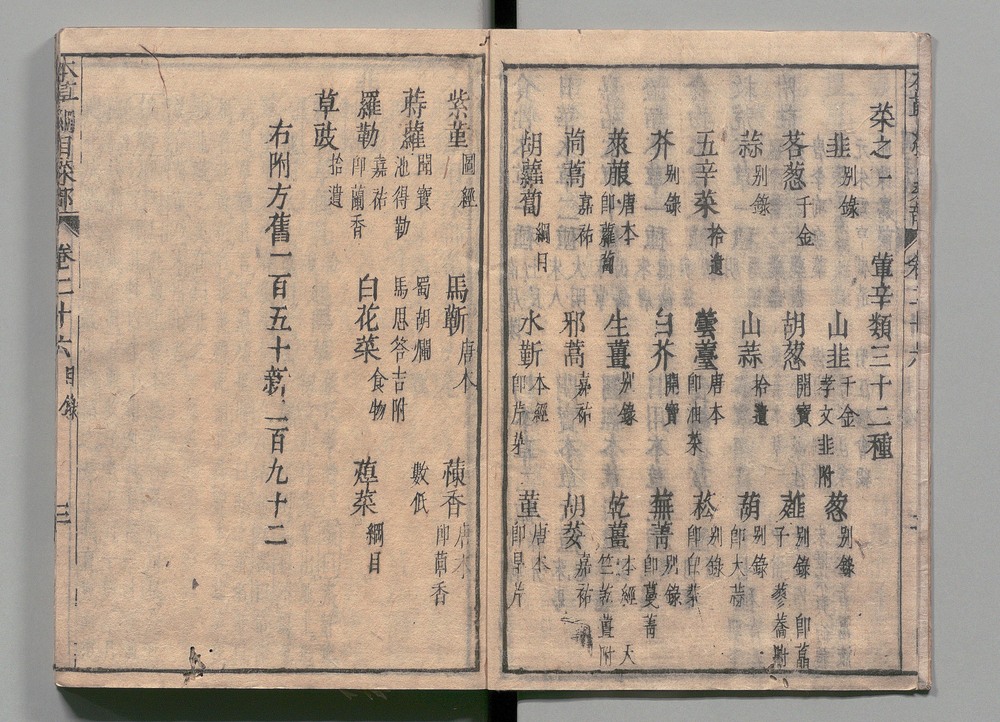 菜之一 葷辛類三十二種
韭 别錄 山韭 千金 孝文韭附 葱 别錄
茖葱 千金 胡葱 開寶 薤 别錄 即藠子 蓼蕎附
蒜 别錄 山蒜 拾遺 葫 别錄 即大蒜
五辛菜 拾遺 蕓薹 唐本 即油菜 菘 别錄 即白菜
芥 别錄 白芥 開寶 蕪菁 别錄 即蔓菁
萊菔 唐本 即蘿蔔 生薑 别錄 乾薑 本經 天竺乾薑附
茼蒿 嘉祐 邪蒿 嘉祐 胡荽 嘉祐
胡蘿蔔 綱目 水斳 本經 即芹菜 菫 唐本 即旱芹
紫菫 圖經 馬蘄 唐本 蘹香 唐本 即茴香
蒔蘿 開寶 池得勒 蜀胡爛 馬思荅吉附 數低
羅勒 嘉祐 即蘭香 白花菜 食物 蔊菜 綱目
草豉 拾遺
右附方舊一百五十新二百九十二
本草綱目菜部 卷二十六目錄 三